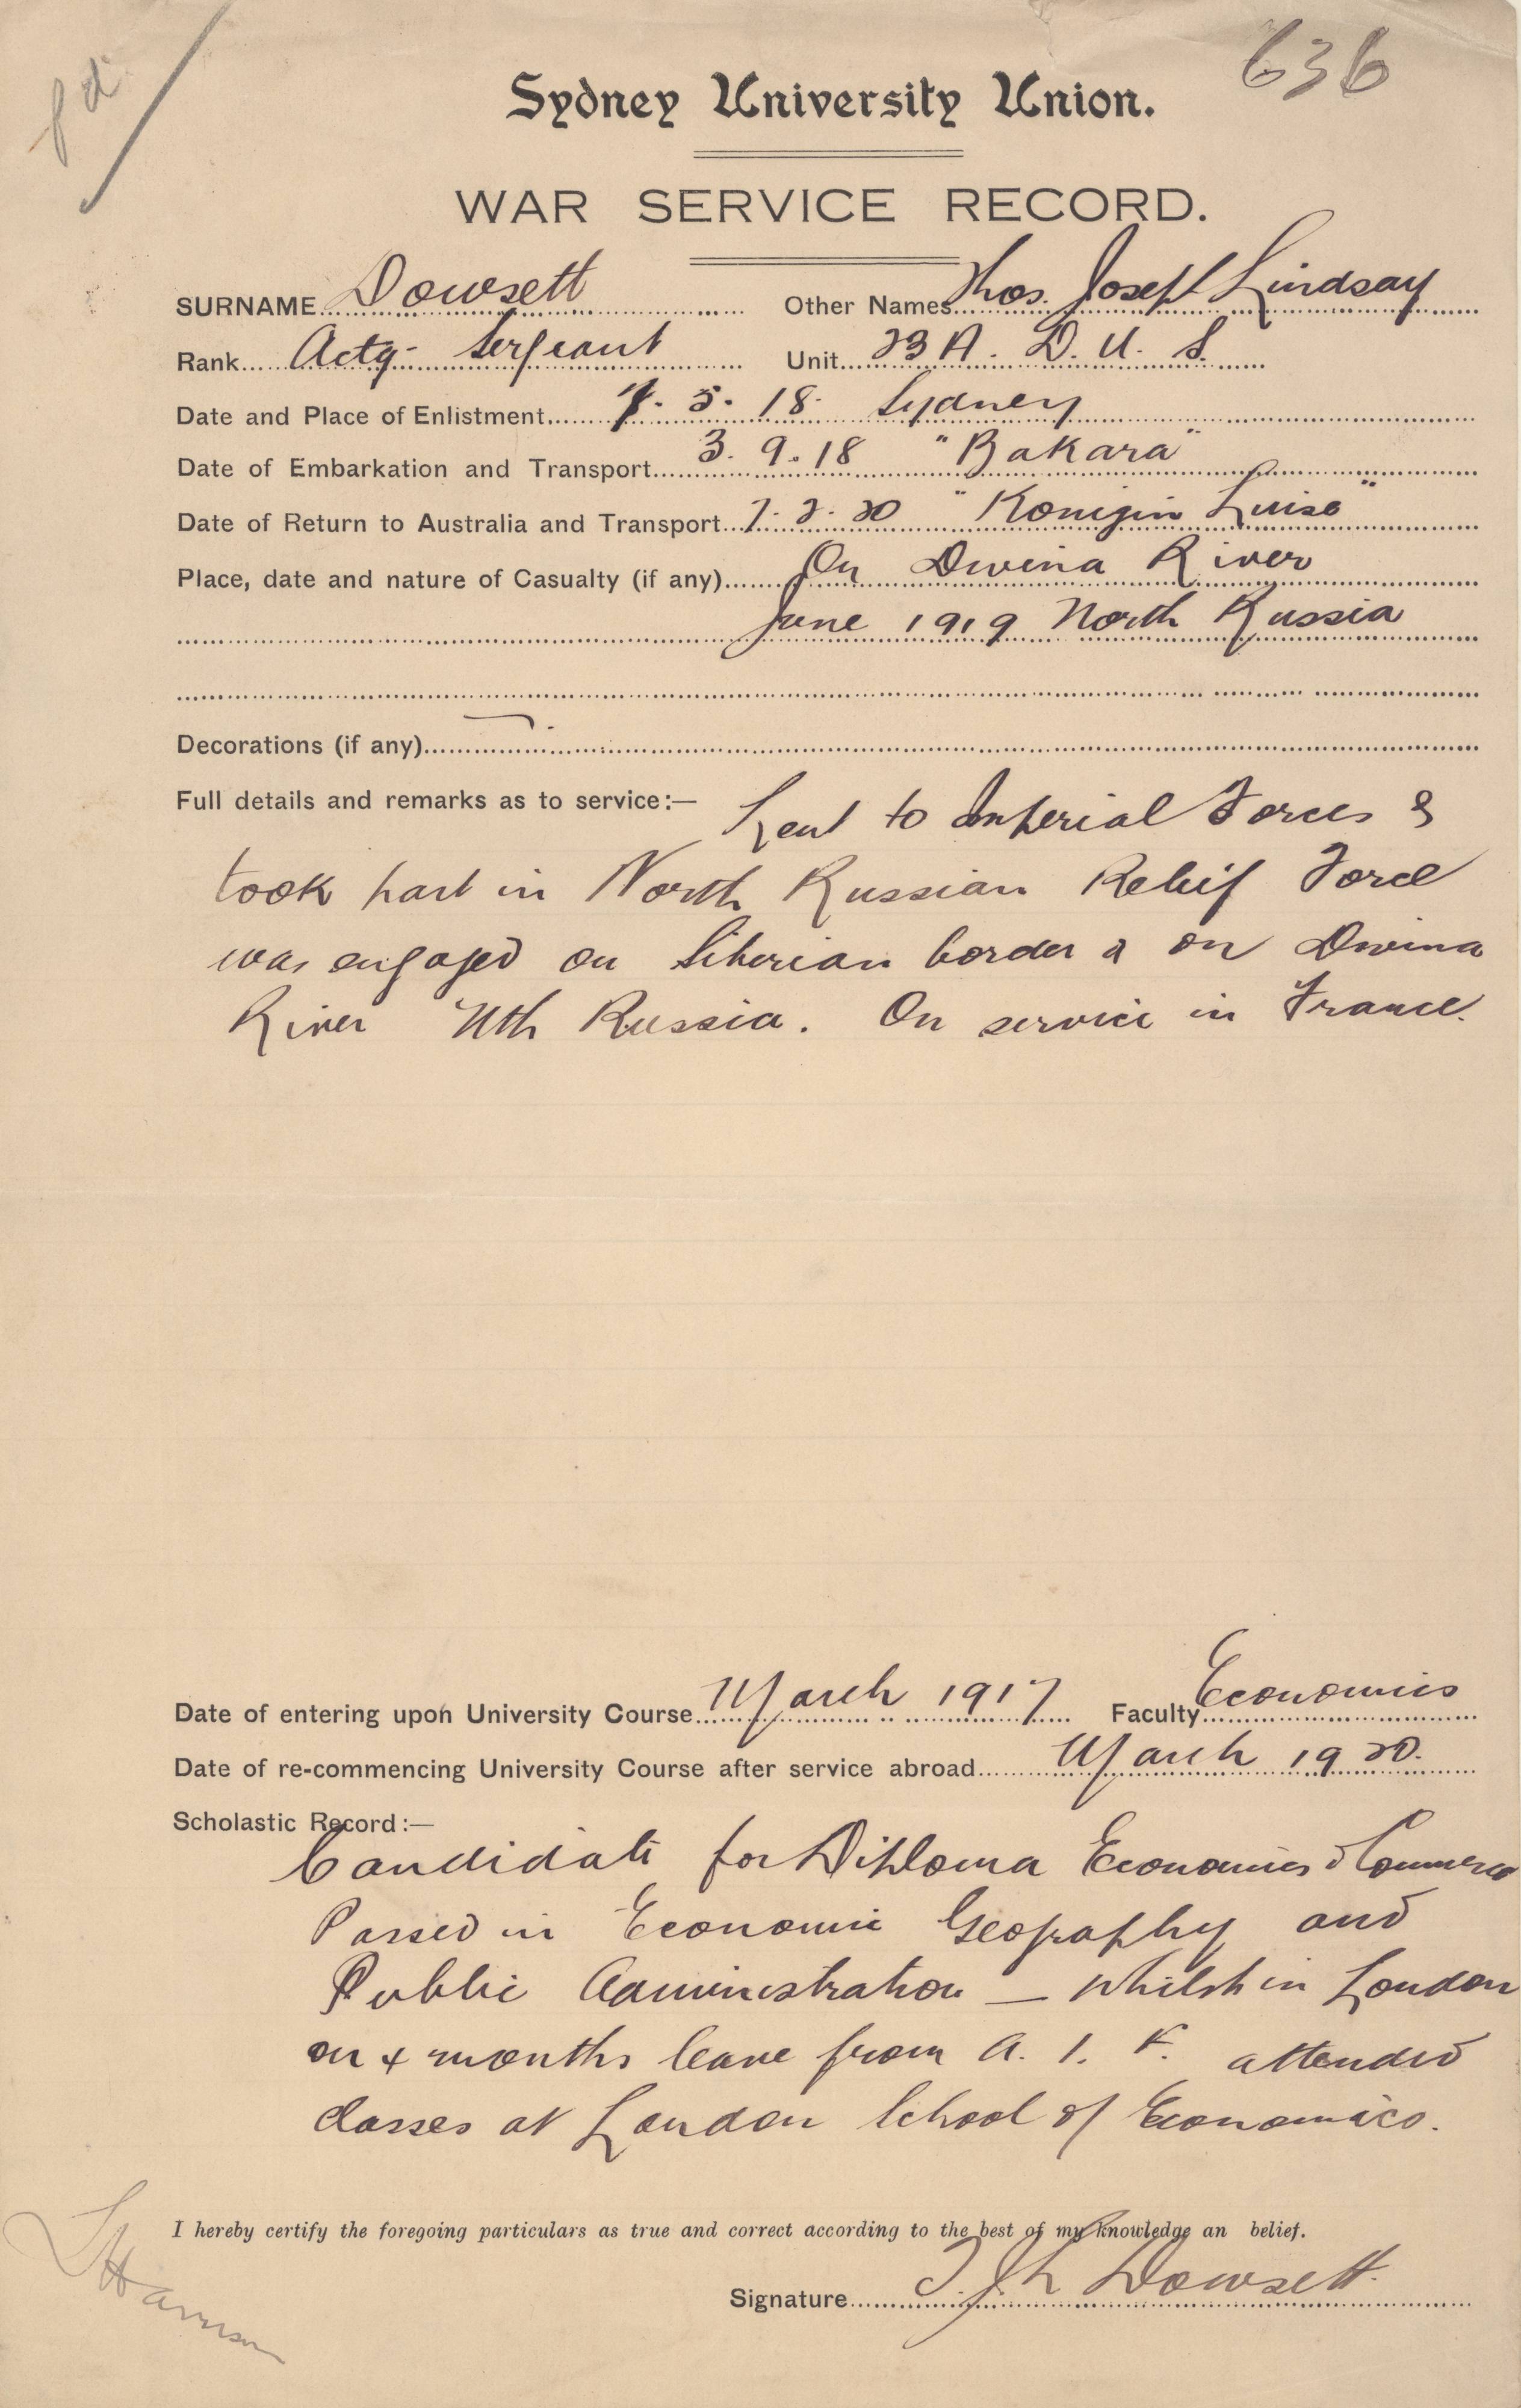 636
Sydney University Union.
WAR SERVICE RECORD.
SURNAME Dowsett Other Names Thos. Joseph Lindsay
Rank Actg. Sergeant Unit 23 A. D. U. S.
Date and Place of Enlistment 7. 5. 18. Sydney
Date of Embarkation and Transport 3. 9. 18 "Bakara"
Date of Return to Australia and Transport 7. 2. 20 "Konigin Luise"
Place, date and nature of Casualty (if any) On Dwina River
June 1919 North Russia
Decorations (if any)
Full details and remarks as to service:— Lent to Imperial Forces &
took part in North Russian Relief Force
was engaged on Siberian border & on Dwina
River Nth Russia. On service in France.
Date of entering upon University Course March 1917 Faculty Economics
Date of re-commencing University Course after service abroad March 1920.
Scholastic Record:—
Candidate for Diploma Economics & Commerce
Passed in Economic Geography and
Public Administration — Whilst in London
on 4 months leave from A. I. F. attended
classes at London School of Economics.
I hereby certify the foregoing particulars as true and correct according to the best of my knowledge an belief.
Signature T. J. L Dowsett.